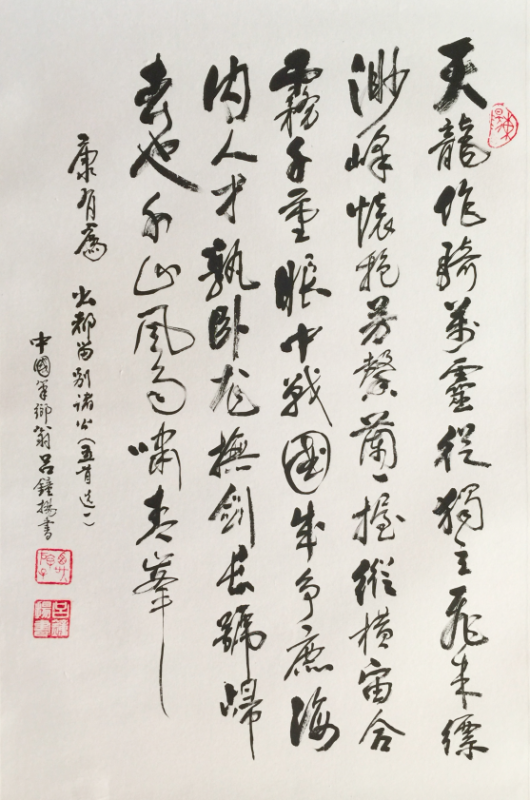 天龍作騎萬靈從獨立飛來縹
渺峰懷抱芳馨蘭一握縱橫宙合
霧千重眼中戰國成爭鹿海
內人才孰臥龙撫劍長號歸
去也千山風雨嘯青峯
康有為 出都留別諸公(五首选一)
中國筆鄉翁呂鐘揚書